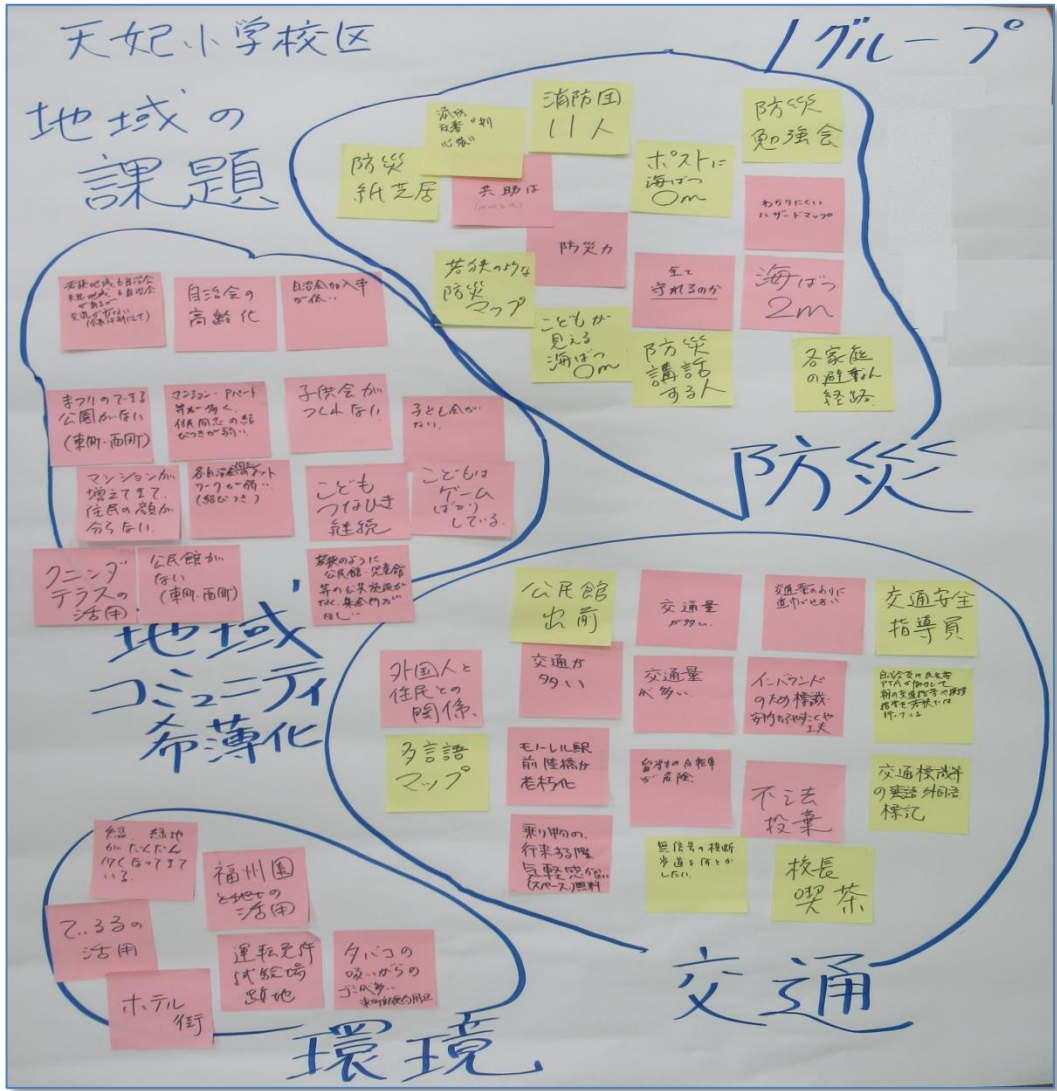 天妃小学校区
1グループ
地域の
課題
防災
紙芝居
消防団
11人
ポストに
海ばつ
0m
防災
勉強会
共助は
わかりにくい
ハザードマップ
防災力
若狭のような
防災
マップ
全て
守れるのか
海ばつ
2m
こどもが
見える
海ばつ
0m
防災
講話
する人
各家庭
の避難
経路
防災
自治会の
高齢化
自治会加入率
が低い
まつりのできる
公園がない
(東町・西町)
マンション・アパート
等が多く、
住民同志の結
びつきが弱い
子供会が
つくれない
子ども会が
ない
マンションが
増えてきて、
住民の顔が
分らない
各自治会ネット
ワークが弱い
(結びつき)
こども
つなひき
継続
こどもは
ゲーム
ばかり
している。
クニンダ
テラスの
活用
公民館が
ない
(東町・西町)
若狭のように
公民館・児童館
等の公共施設が
なく、集会所が
ほしい
地域
コミュニティ
希薄化
公民館
出前
交通量
が多い
交通量のわりに
道巾がせまい
交通安全
指導員
外国人と
住民との
関係、
交通が
多い
交通量
が多い
インバウンド
のため標識
工夫
多言語
マップ
モノレール駅
前陸橋が
老朽化
留学生の自転車
が危険
不法
投棄
交通標識等
の英語外国語
標記
乗り物の、
行来する際
気軽感がない
(スペース)無料
無信号の横断
歩道を何とか
したい
校長
喫茶
交通
緑、緑地
がだんだん
なくなってきて
いる
福州園
の
活用
てぃるるの
活用
運転免許
試験場
跡地
タバコの
吸いがらの
ゴミが多い
ホテル
街
環境